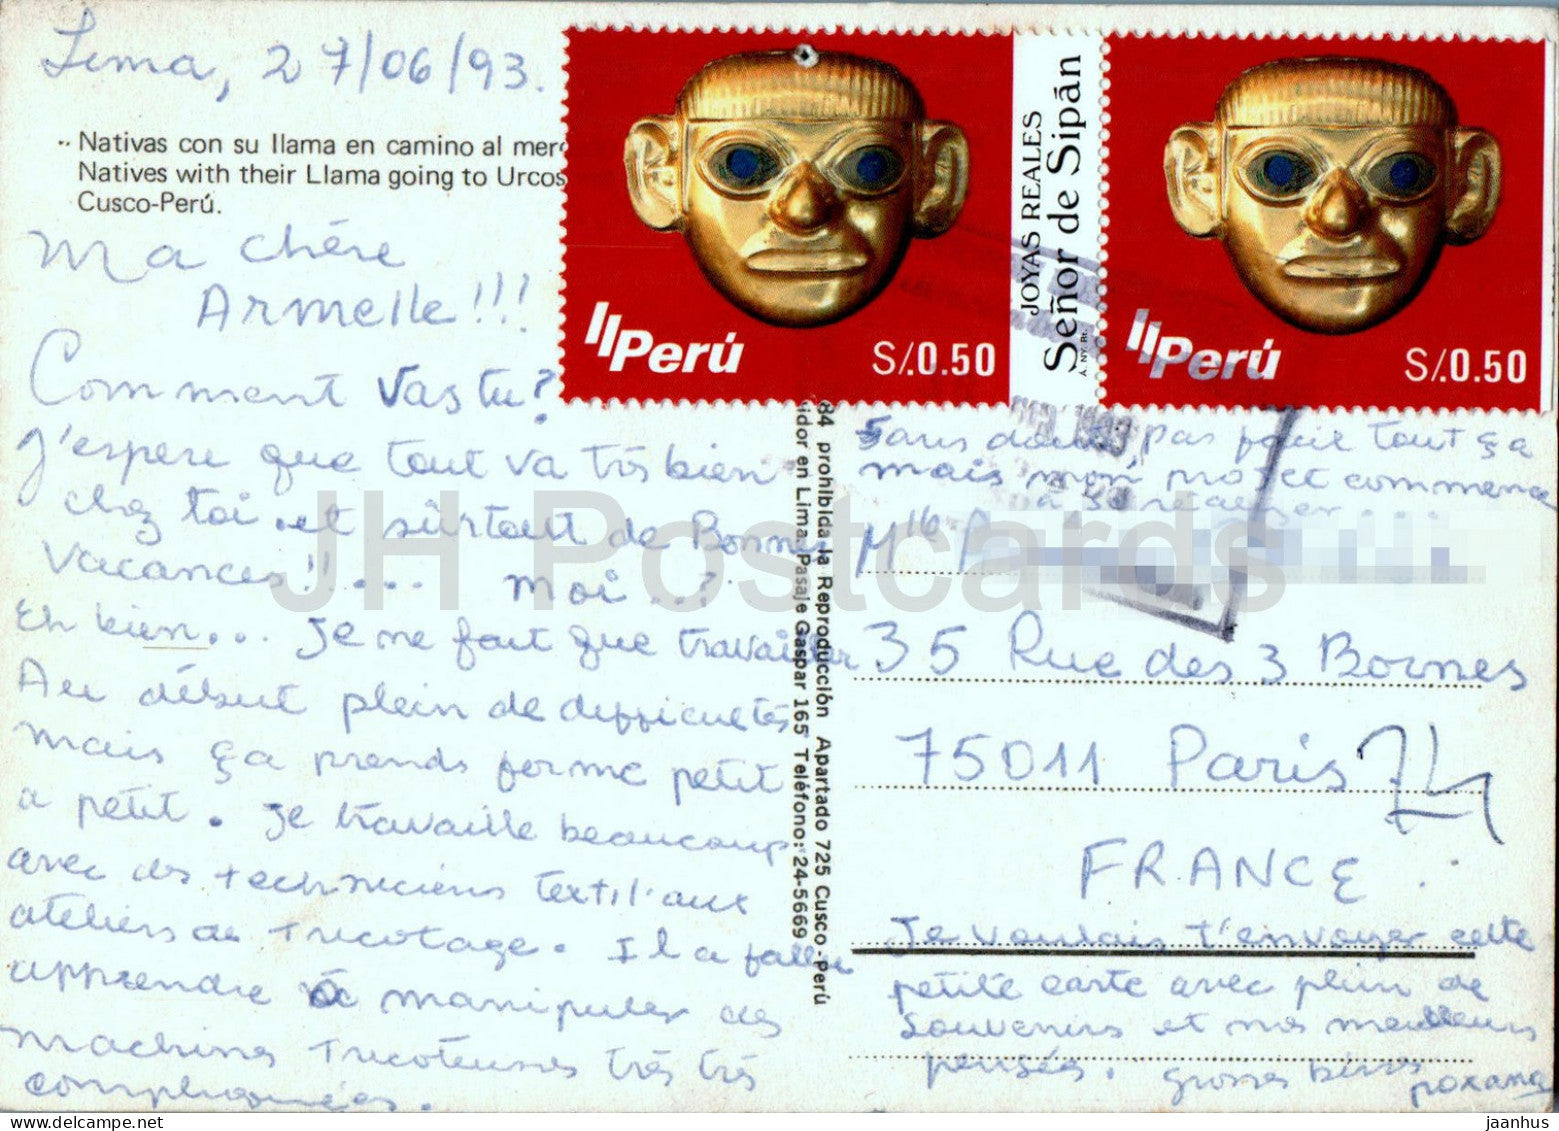 Lima, 27/06/93.
Nativas con su llama en camino al mer
Natives with their Llama going to Urcos
Cusco-Perú.
Ma chère
Armelle!!!
Comment vas tu?
J'espere que tout va très bien
chez toi et sûrtout de Bonnes
vacances!!.... Moi...?
Eh bien... Je ne fait que travailler
Au début plein de difficultés
mais ça prends forme petit
a petit. Je travaille beaucoup
avec des techniciens textil. aux
ateliers de tricotage. Il a fallu
apprendre à manipuler des
machines tricoteuses très très
compliquées.
JOYAS REALES
Señor de Sipán
A. NY. Br.
Perú
S/.0.50
Perú
S/.0.50
84 prohibida la Reproducción Apartado 725 Cusco - Perú
idor en Lima: Pasaje Gaspar 165 Teléfono: 24-5669
Sans doute pas pour tout ça
mais mon projet commence
à se realiser...
35 Rue des 3 Bornes
75011 Paris
FRANCE.
Je voulais t'envoyer cette
petite carte avec plein de
souvenirs et mes meilleurs
pensés. grosses bises
roxana
JH Postcards
www.hippostcard.com/store/jaanhus